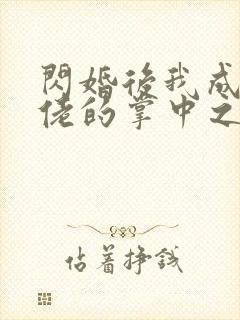 閃婚後我成
佬的掌中之
佔着挣錢